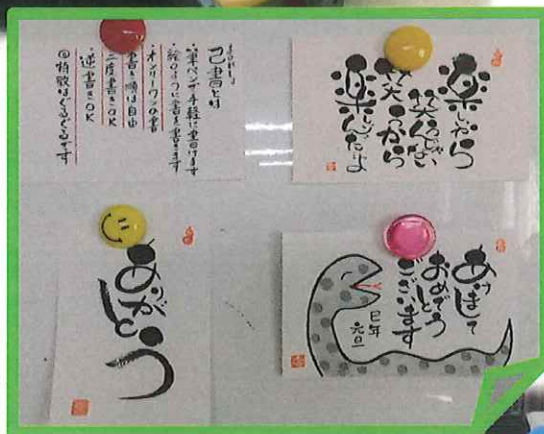 己書とは
・筆ペンで手軽に書けます
・絵のように書を書きます
・オンリーワンの書
・書き順は自由
・二度書きOK
・逆書きOK
◎特徴はぐるぐるです
楽しいから
笑うんじゃない
笑うから
楽しいんだよ
ありがとう
あけまして
おめでとう
ございます
巳年
元旦